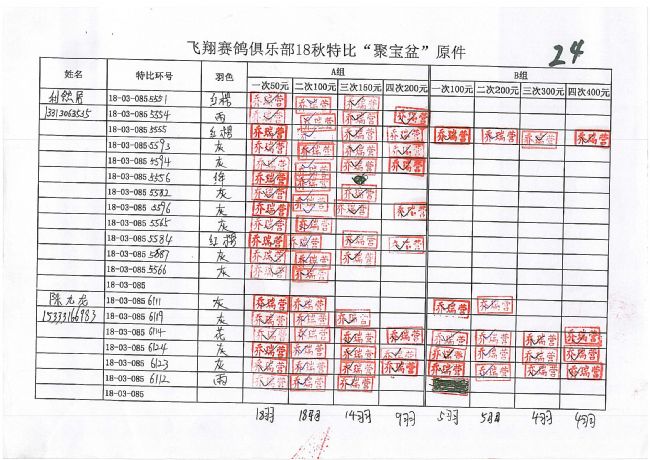 飞翔赛鸽俱乐部18秋特比“聚宝盆”原件
24
姓名 特比环号 羽色 A组 B组
一次50元 二次100元 三次150元 四次200元 一次100元 二次200元 三次300元 四次400元
18-03-085 5551 红楞 乔瑞营 乔瑞营 乔瑞营
18-03-085 5554 雨 乔瑞营 乔瑞营 乔瑞营 乔瑞营
18-03-085 5555 红楞 乔瑞营 乔瑞营 乔瑞营 乔瑞营 乔瑞营 乔瑞营 乔瑞营 乔瑞营
18-03-085 5593 灰 乔瑞营 乔瑞营 乔瑞营 乔瑞营
18-03-085 5594 灰 乔瑞营 乔瑞营 乔瑞营 乔瑞营
18-03-085 5556 绛 乔瑞营 乔瑞营
18-03-085 5582 灰 乔瑞营 乔瑞营 乔瑞营
18-03-085 5596 灰 乔瑞营 乔瑞营 乔瑞营 乔瑞营
18-03-085 5565 灰 乔瑞营 乔瑞营
18-03-085 5584 红楞 乔瑞营 乔瑞营 乔瑞营 乔瑞营
18-03-085 5887 灰 乔瑞营 乔瑞营 乔瑞营
18-03-085 5566 灰 乔瑞营 乔瑞营
18-03-085
18-03-085 6111 灰 乔瑞营 乔瑞营 乔瑞营 乔瑞营
15333166983 18-03-085 6119 灰 乔瑞营 乔瑞营 乔瑞营
18-03-085 6114 花 乔瑞营 乔瑞营 乔瑞营 乔瑞营 乔瑞营 乔瑞营 乔瑞营 乔瑞营
18-03-085 6124 灰 乔瑞营 乔瑞营 乔瑞营 乔瑞营 乔瑞营 乔瑞营 乔瑞营 乔瑞营
18-03-085 6123 灰 乔瑞营 乔瑞营 乔瑞营 乔瑞营 乔瑞营 乔瑞营 乔瑞营 乔瑞营
18-03-085 6112 雨 乔瑞营 乔瑞营 乔瑞营
18-03-085
18羽 18羽 14羽 9羽 5羽 5羽 4羽 4羽